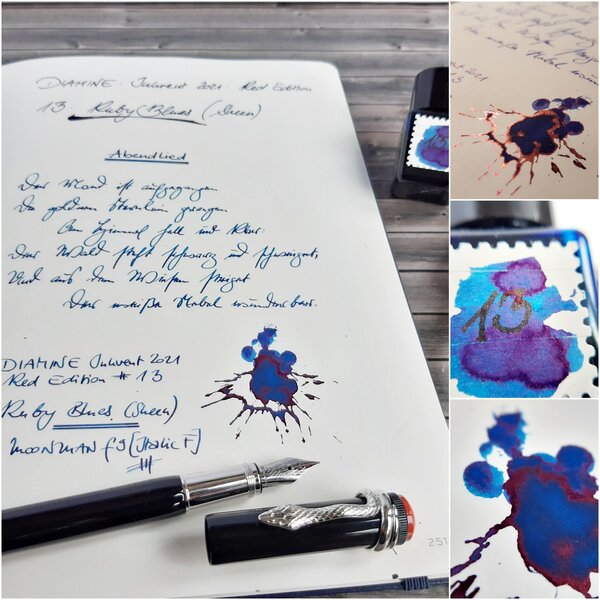 DIAMINE · Inkvent 2021 · Red Edition
13. Ruby Blues (Sheen)
Abendlied
Der Mond ist aufgegangen
Die goldnen Sternlein prangen
Am Himmel hell und klar:
Der Wald steht schwarz und schweiget,
Und aus den Wiesen steiget
Der weiße Nebel wunderbar.
DIAMINE Inkvent 2021
Red Edition # 13
Ruby Blues (Sheen)
MOONMAN f9 [Italic F]
251
13